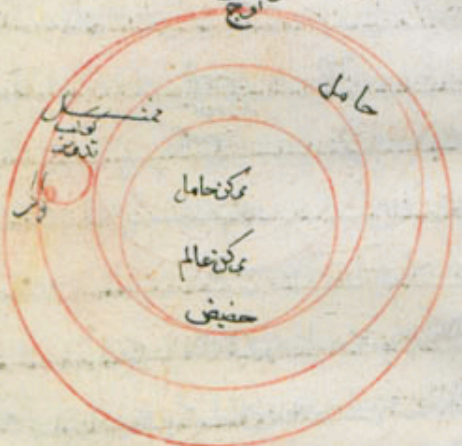 اوج
حامل
ممثل
تدویر
مرکز حامل
مرکز عالم
حضیض